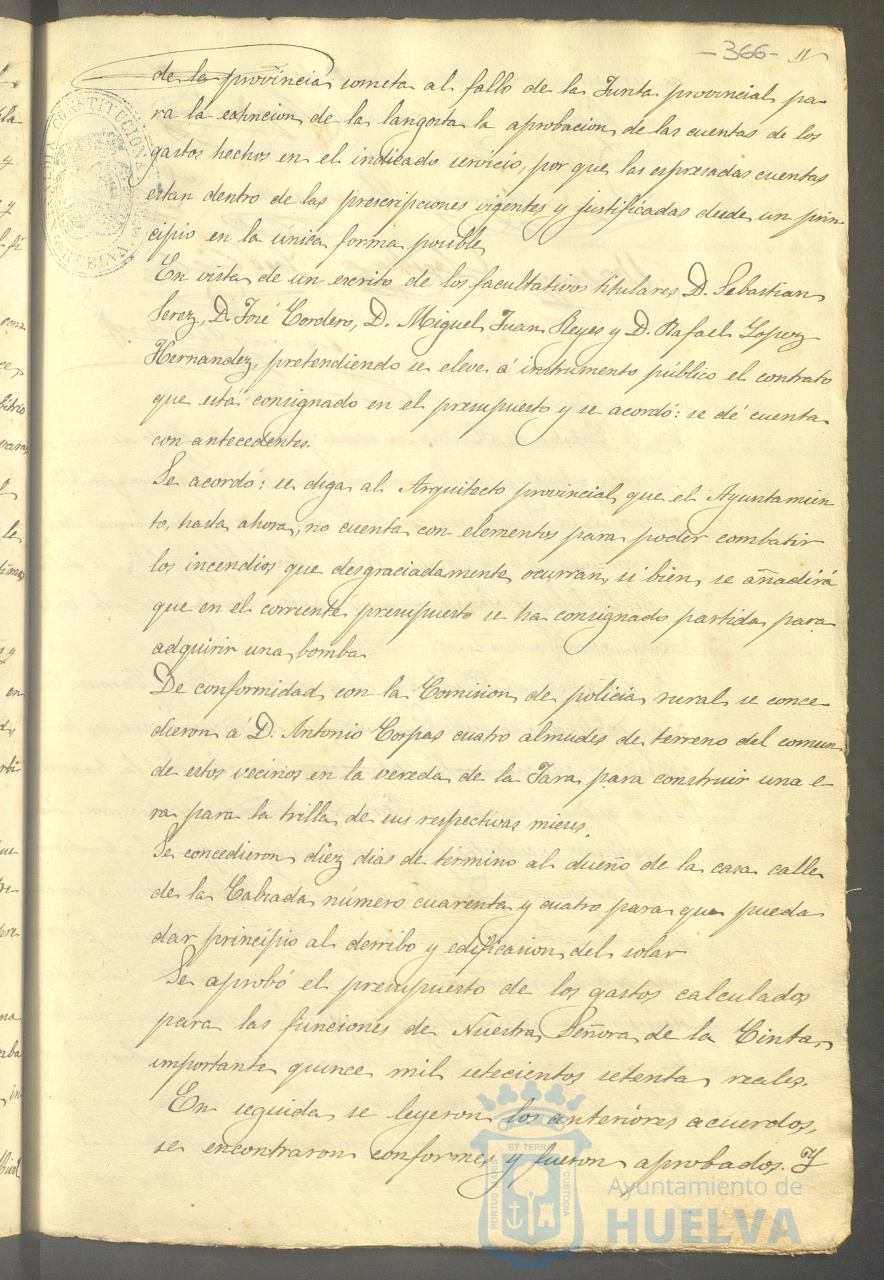 -366- 11
de la provincia someta al fallo de la Junta provincial pa-
ra la extincion de la langosta la aprobacion de las cuentas de los
gastos hechos en el indicado servicio, por que las espresadas cuentas
estan dentro de las prescripciones vigentes y justificadas desde un prin
cipio en la única forma posible
En vista de un escrito de los facultativos titulares D. Sebastian
Perez, D. José Cordero, D. Miguel Juan Reyes y D. Rafael Lopez
Hernandez, pretendiendo se eleve á instrumento público el contrato
que está consignado en el presupuesto y se acordó: se dé cuenta
con antecedentes.
Se acordó: se diga al Arquitecto provincial, que el Ayuntamien
to, hasta ahora, no cuenta con elementos para poder combatir
los incendios que desgraciadamente ocurran, si bien se añadirá
que en el corriente presupuesto se ha consignado partida para
adquirir una bomba
De conformidad con la Comision de policia rural se conce-
dieron á D. Antonio Corpas cuatro almudes de terreno del comun
de estos vecinos en la vereda de la Jara para construir una e-
ra para la trilla de sus respectivas mieses.
Se concedieron diez dias de término al dueño de la casa calle
de la Calzada número cuarenta y cuatro para que pueda
dar principio al derribo y edificacion del solar
Se aprobó el presupuesto de los gastos calculados
para las funciones de Nuestra Señora de la Cinta,
importante quince mil setecientos setenta reales.
En seguida se leyeron los anteriores acuerdos,
se encontraron conformes y fueron aprobados. Y
PORTUS MARIS ET TERRAE CUSTODIA
Ayuntamiento de
HUELVA